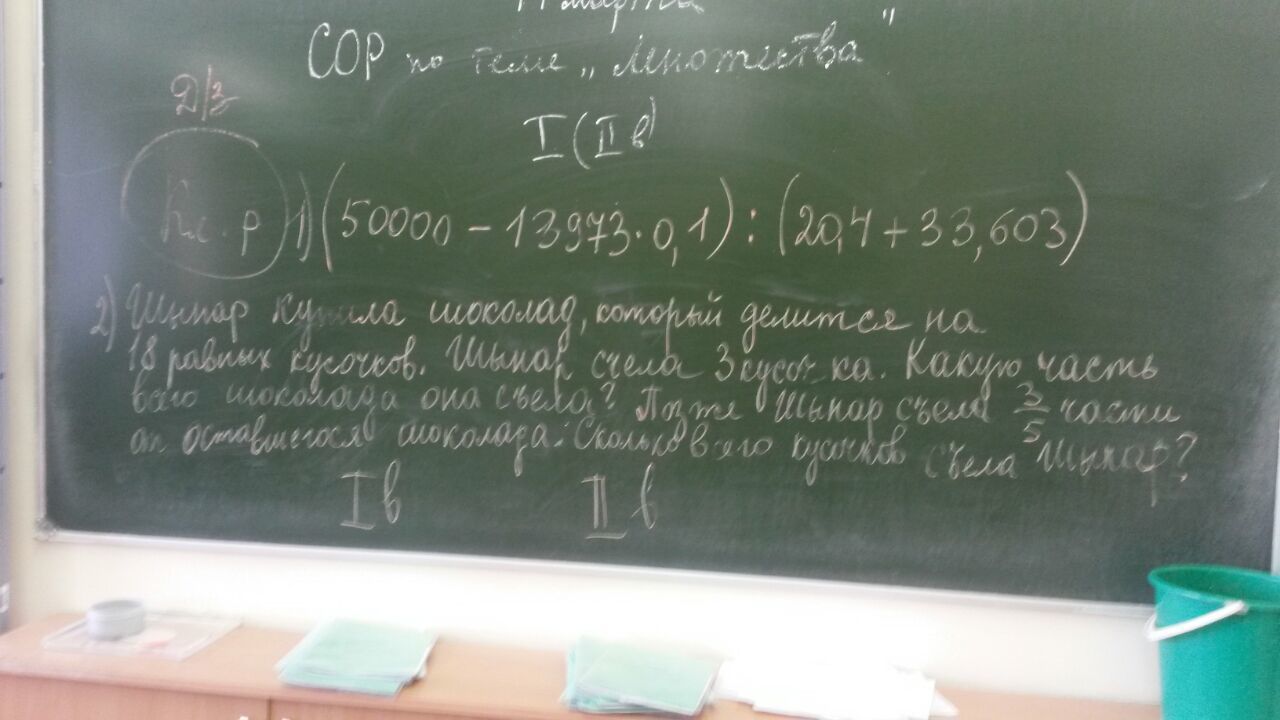 11 марта
СОР по теме „Множества"
Д/з
I (II в)
Кл. р 1) (50000 - 13973·0,1) : (20,4 + 33,603)
2) Шынар купила шоколад, который делится на
18 равных кусочков. Шынар съела 3 кусочка. Какую часть
всего шоколада она съела? Позже Шынар съела 3/5 части
от оставшегося шоколада. Сколько всего кусочков съела Шынар?
I в II в